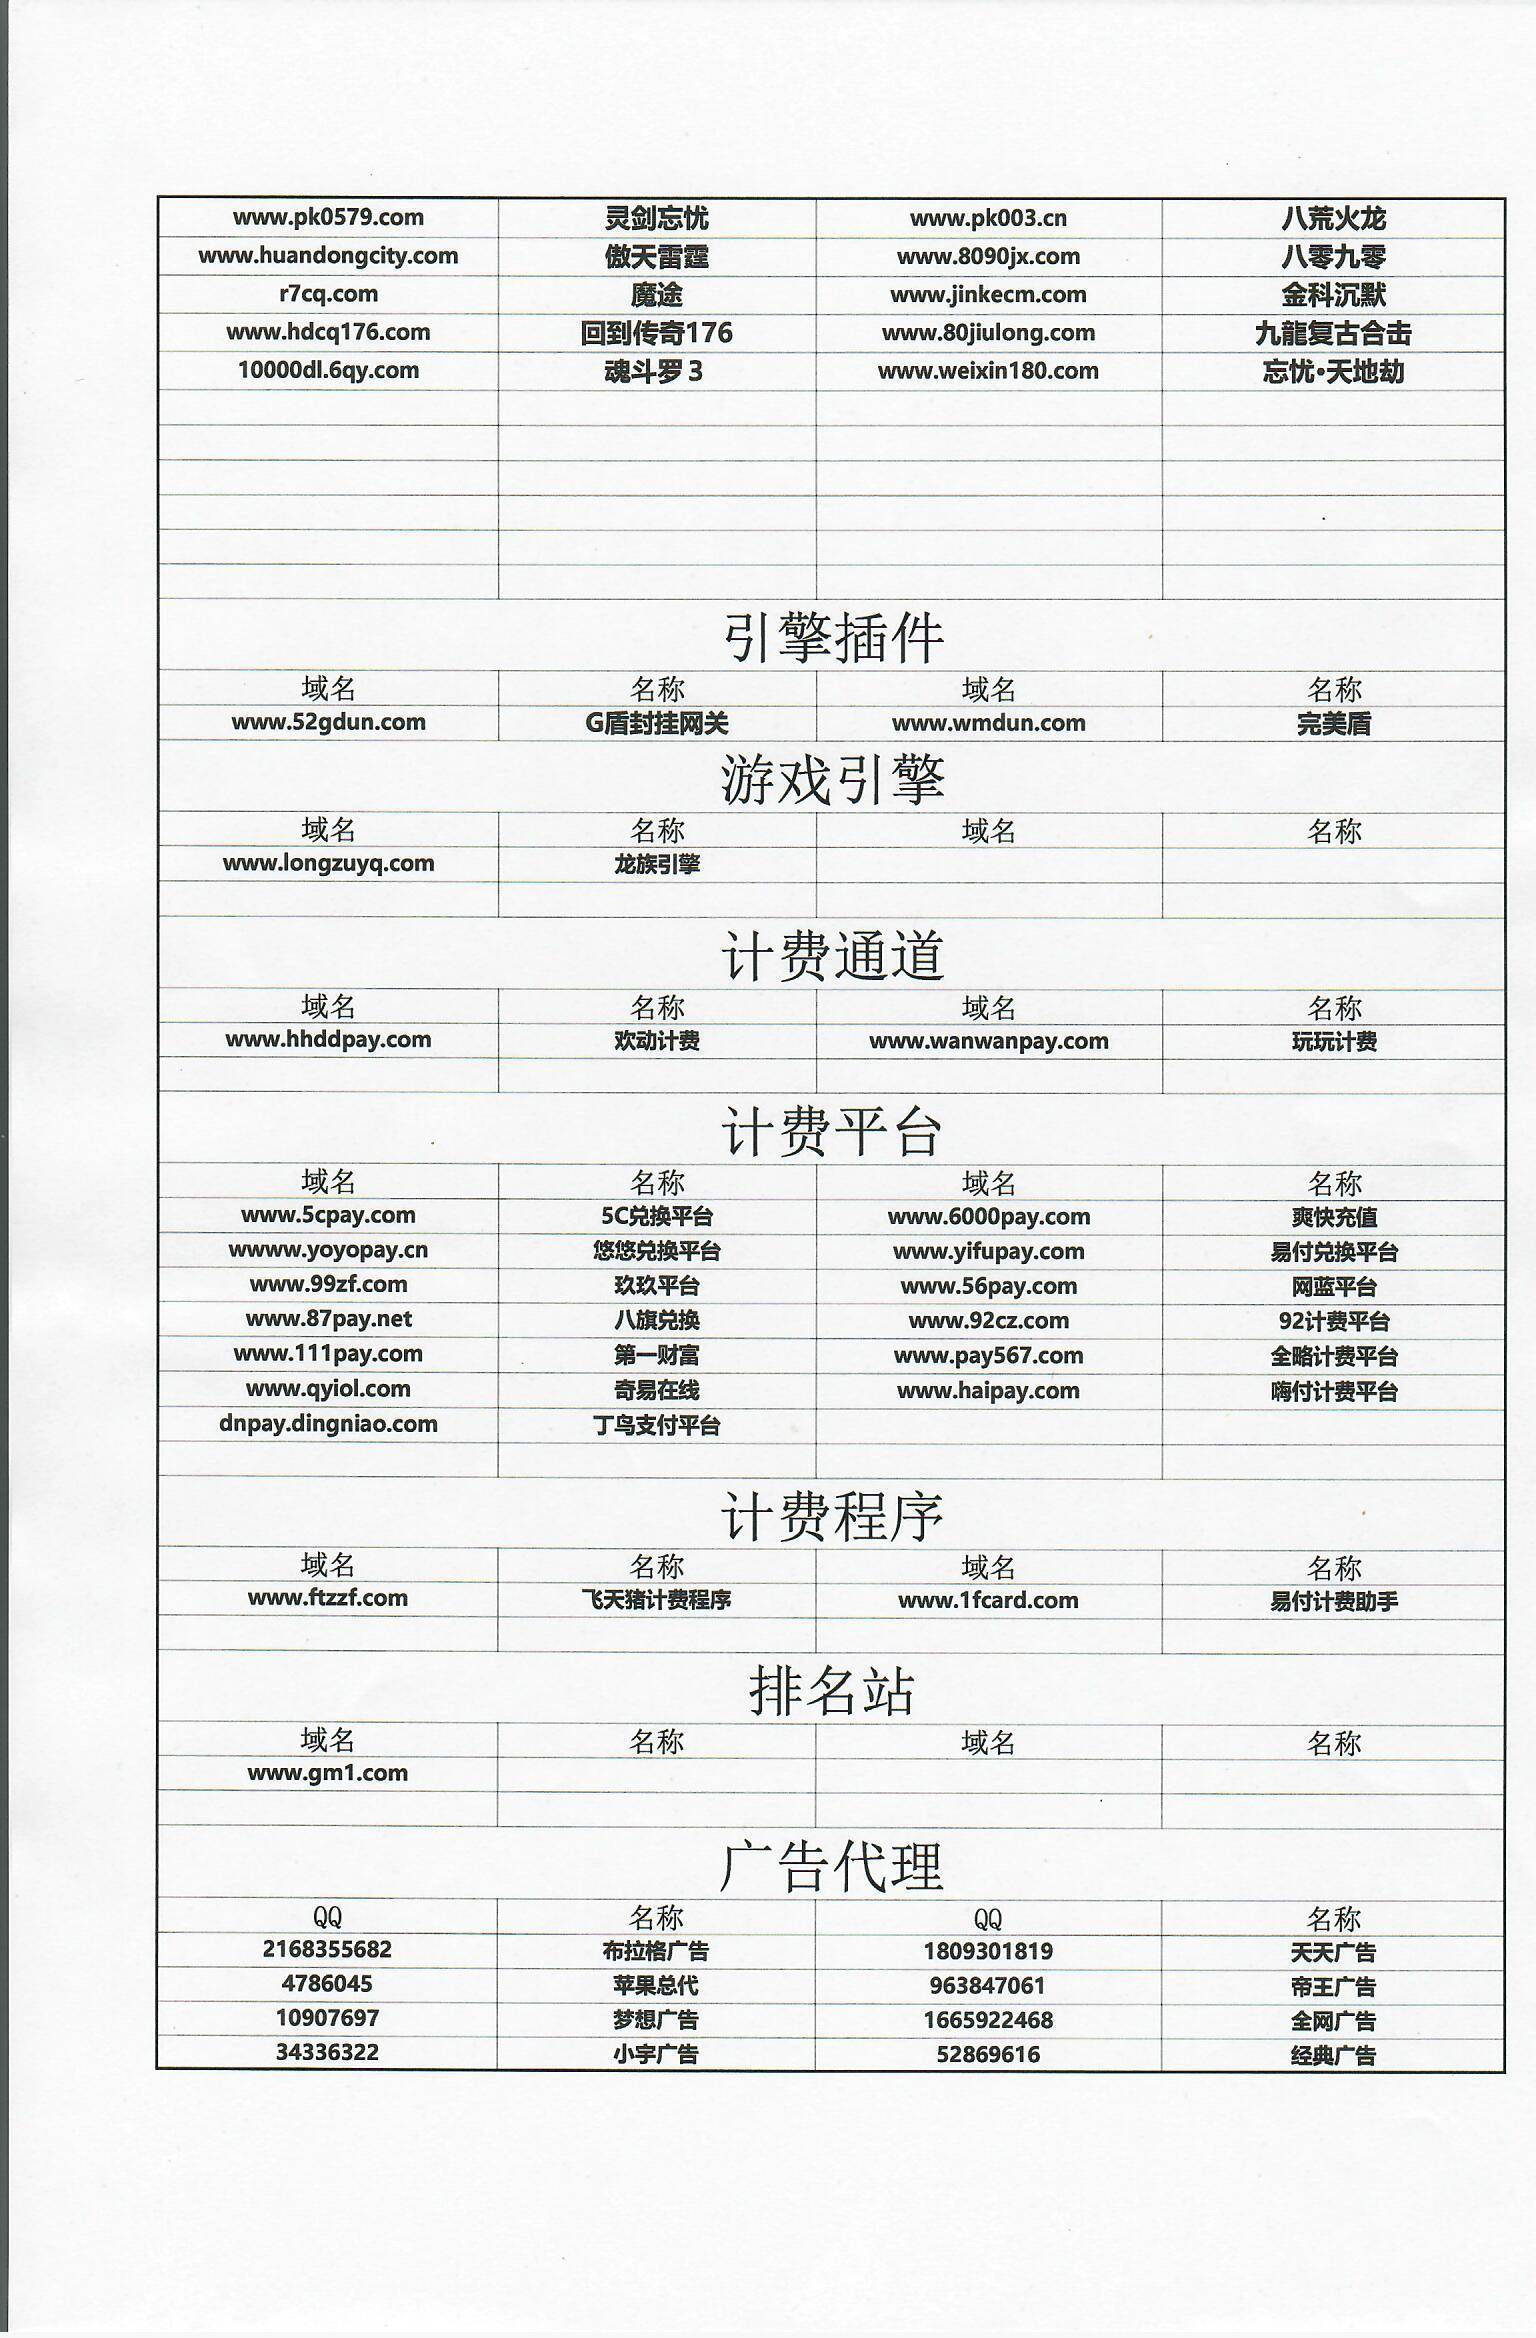 www.pk0579.com 灵剑忘忧 www.pk003.cn 八荒火龙
www.huandongcity.com 傲天雷霆 www.8090jx.com 八零九零
r7cq.com 魔途 www.jinkecm.com 金科沉默
www.hdcq176.com 回到传奇176 www.80jiulong.com 九龍复古合击
10000dl.6qy.com 魂斗罗 3 www.weixin180.com 忘忧·天地劫
引擎插件
域名 名称 域名 名称
www.52gdun.com G盾封挂网关 www.wmdun.com 完美盾
游戏引擎
域名 名称 域名 名称
www.longzuyq.com 龙族引擎
计费通道
域名 名称 域名 名称
www.hhddpay.com 欢动计费 www.wanwanpay.com 玩玩计费
计费平台
域名 名称 域名 名称
www.5cpay.com 5C兑换平台 www.6000pay.com 爽快充值
wwww.yoyopay.cn 悠悠兑换平台 www.yifupay.com 易付兑换平台
www.99zf.com 玖玖平台 www.56pay.com 网蓝平台
www.87pay.net 八旗兑换 www.92cz.com 92计费平台
www.111pay.com 第一财富 www.pay567.com 全略计费平台
www.qyiol.com 奇易在线 www.haipay.com 嗨付计费平台
dnpay.dingniao.com 丁鸟支付平台
计费程序
域名 名称 域名 名称
www.ftzzf.com 飞天猪计费程序 www.1fcard.com 易付计费助手
排名站
域名 名称 域名 名称
www.gm1.com
广告代理
QQ 名称 QQ 名称
2168355682 布拉格广告 1809301819 天天广告
4786045 苹果总代 963847061 帝王广告
10907697 梦想广告 1665922468 全网广告
34336322 小宇广告 52869616 经典广告